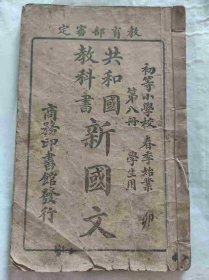 教育部審定
初等小學校 春季始業
第八冊 學生用
共和國
教科書
新國文
商務印書館發行